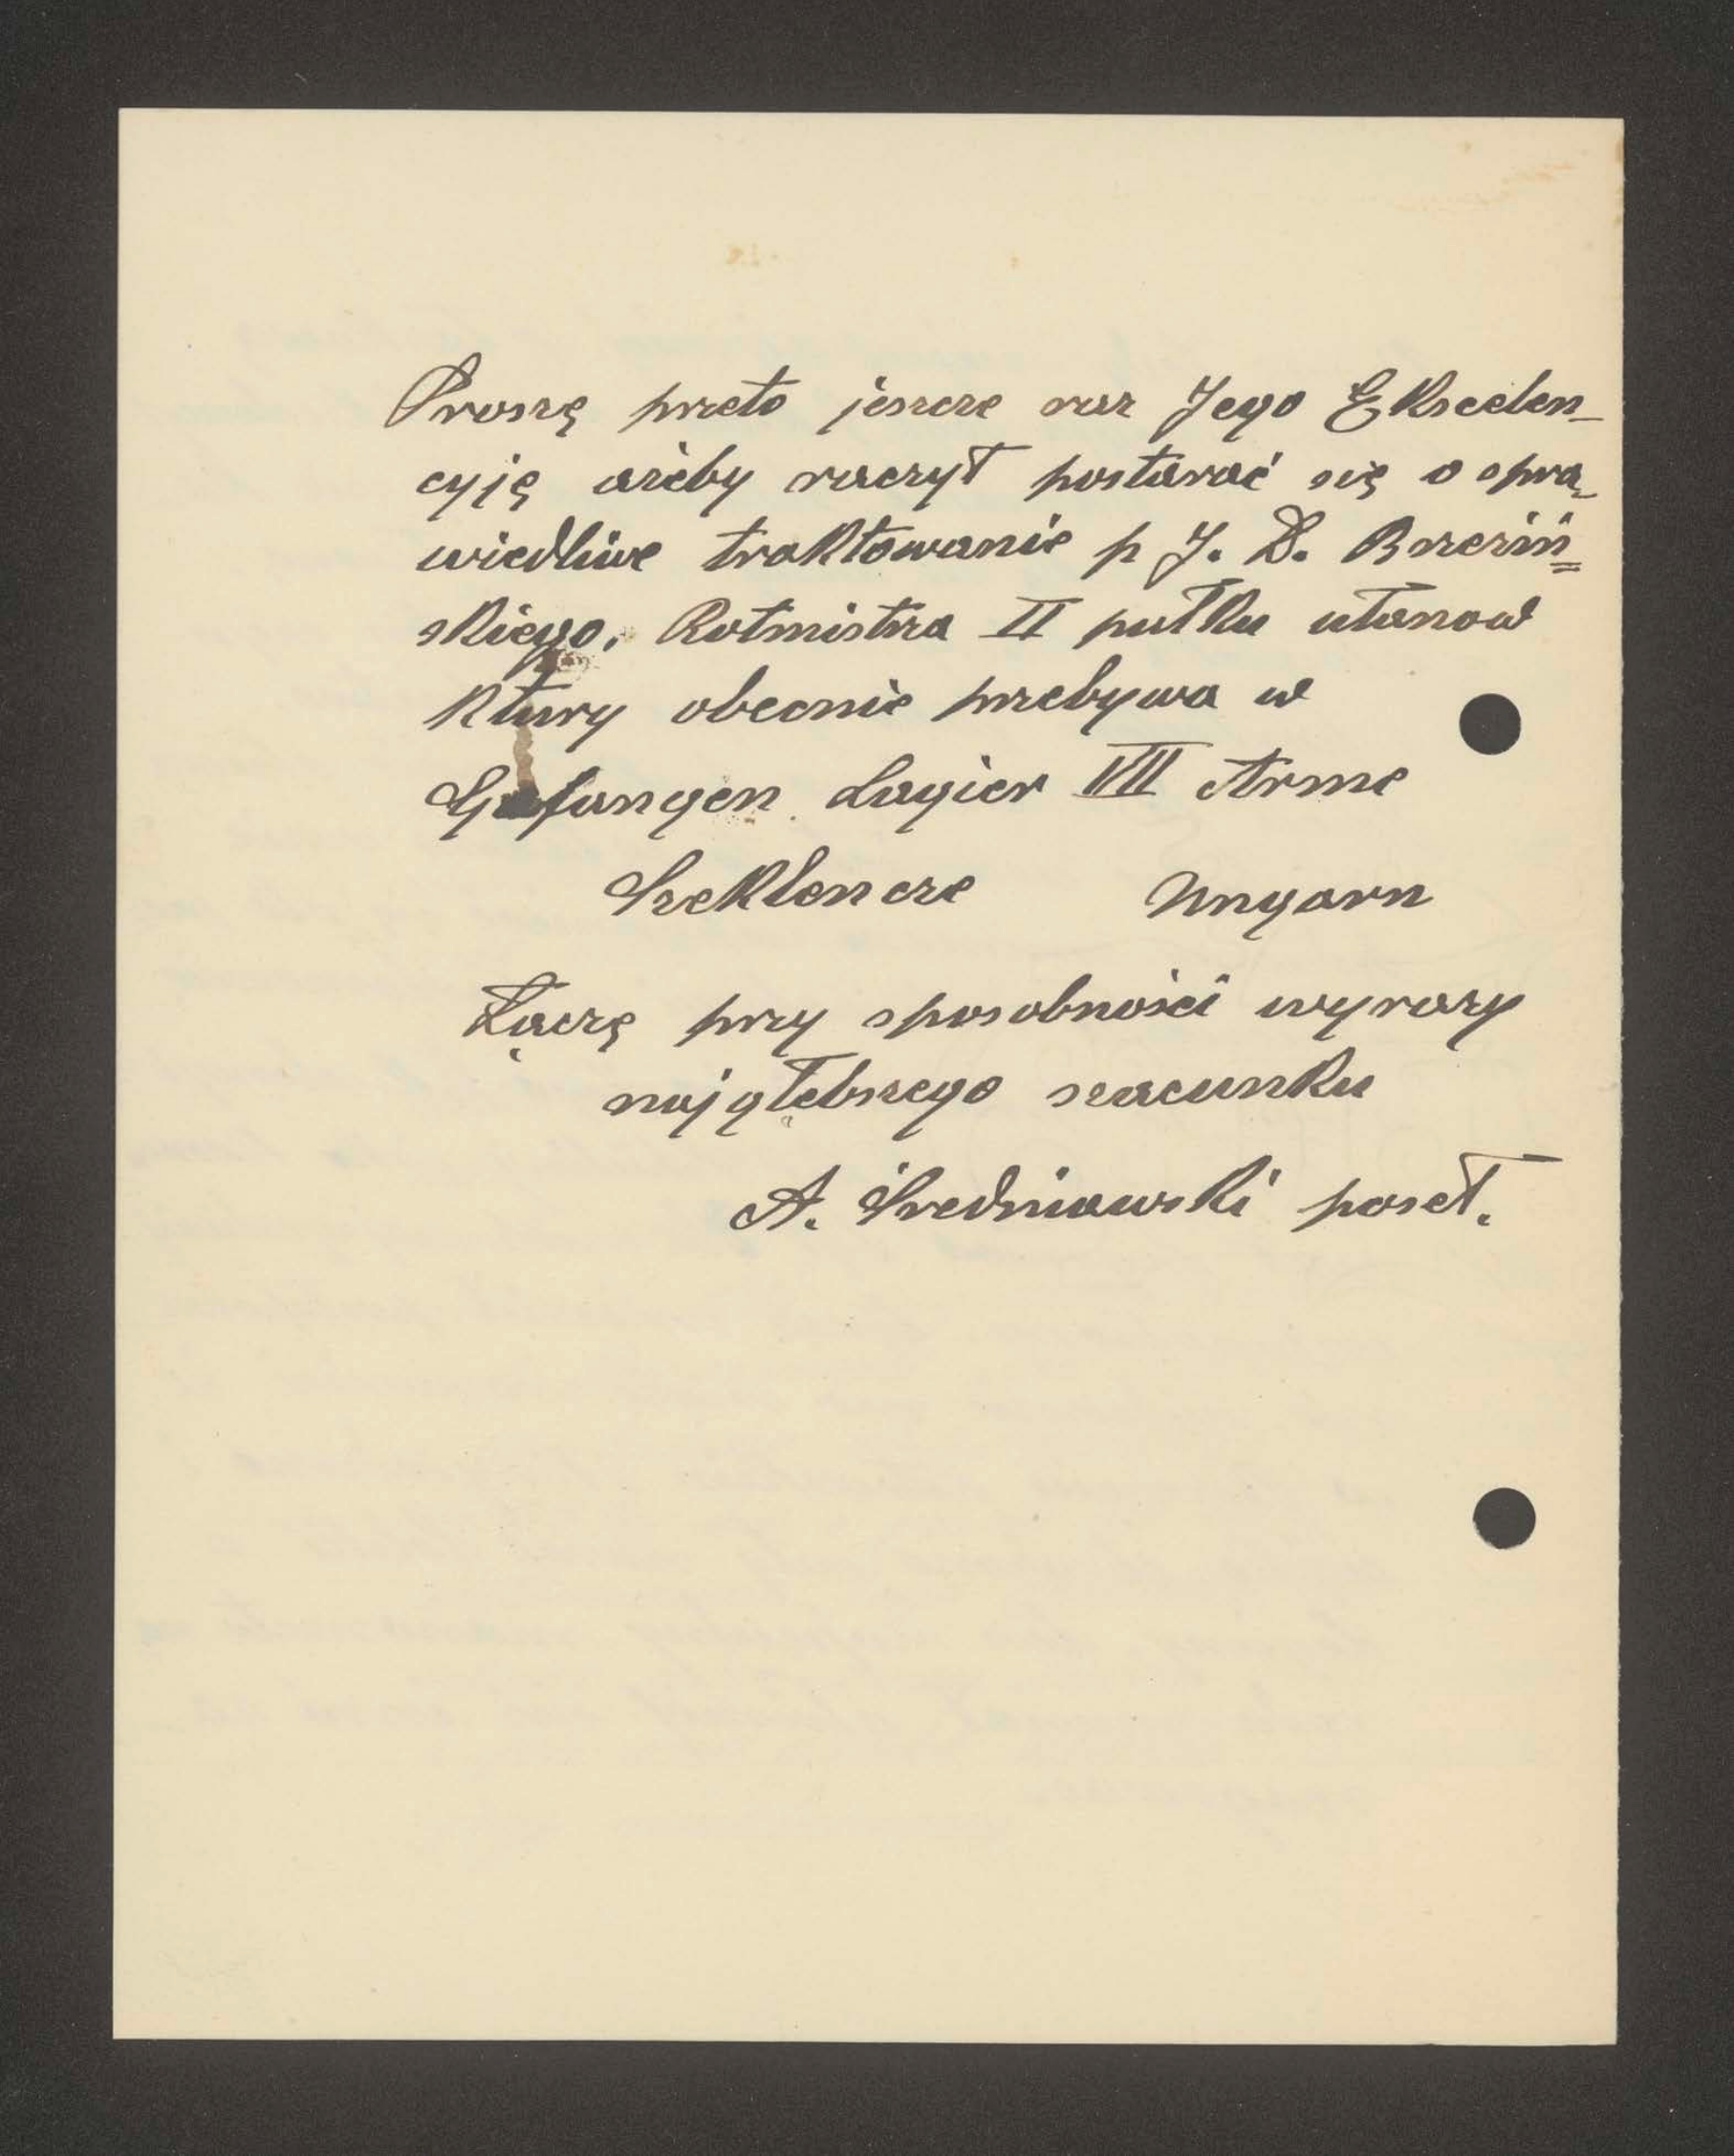 Proszę przeto jeszcze raz Jego Ekscelen-
cyję ażeby raczył postarać się o spra-
wiedliwe traktowanie p J. D. Brzeziń=
skiego. Rotmistrza II pułku ułanow
ktury obecnie przebywa w
Gefangen Lagier VII Arme
Szeklencze Ungarn
Łączę przy sposobności wyrazy
najgłębszego szacunku
A. Średniawski poseł.